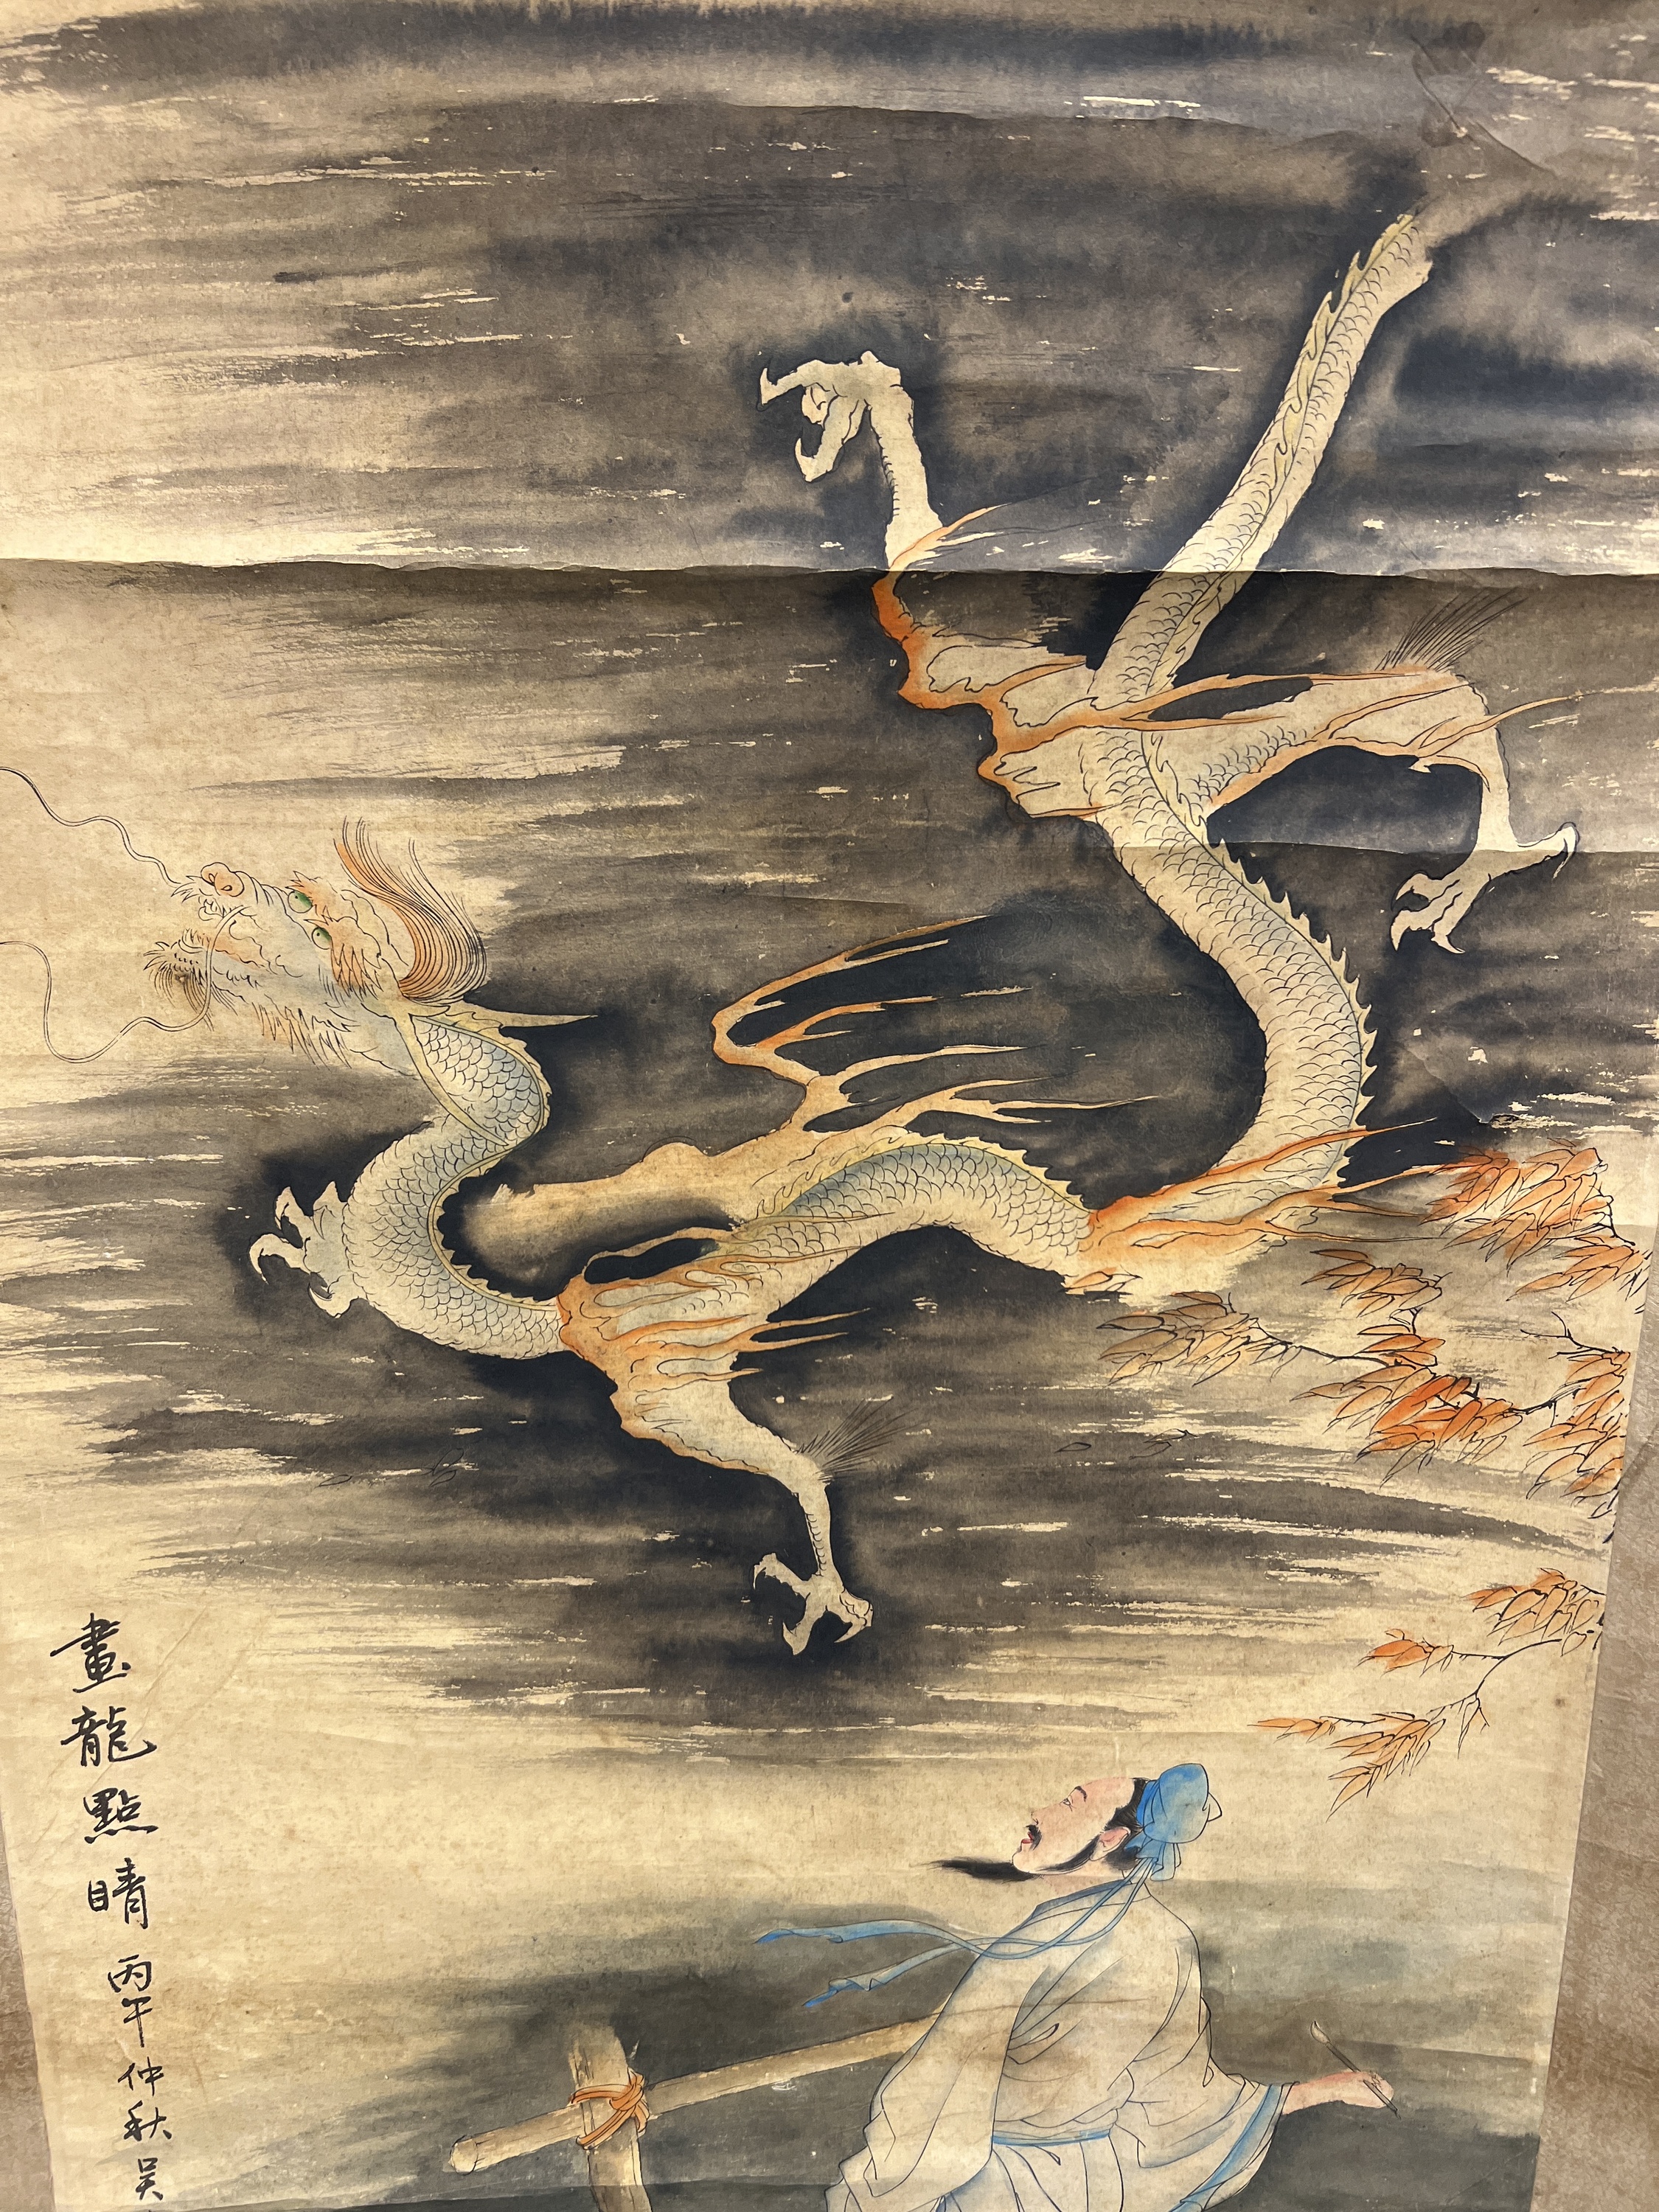 畫龍點睛 丙午仲秋吴